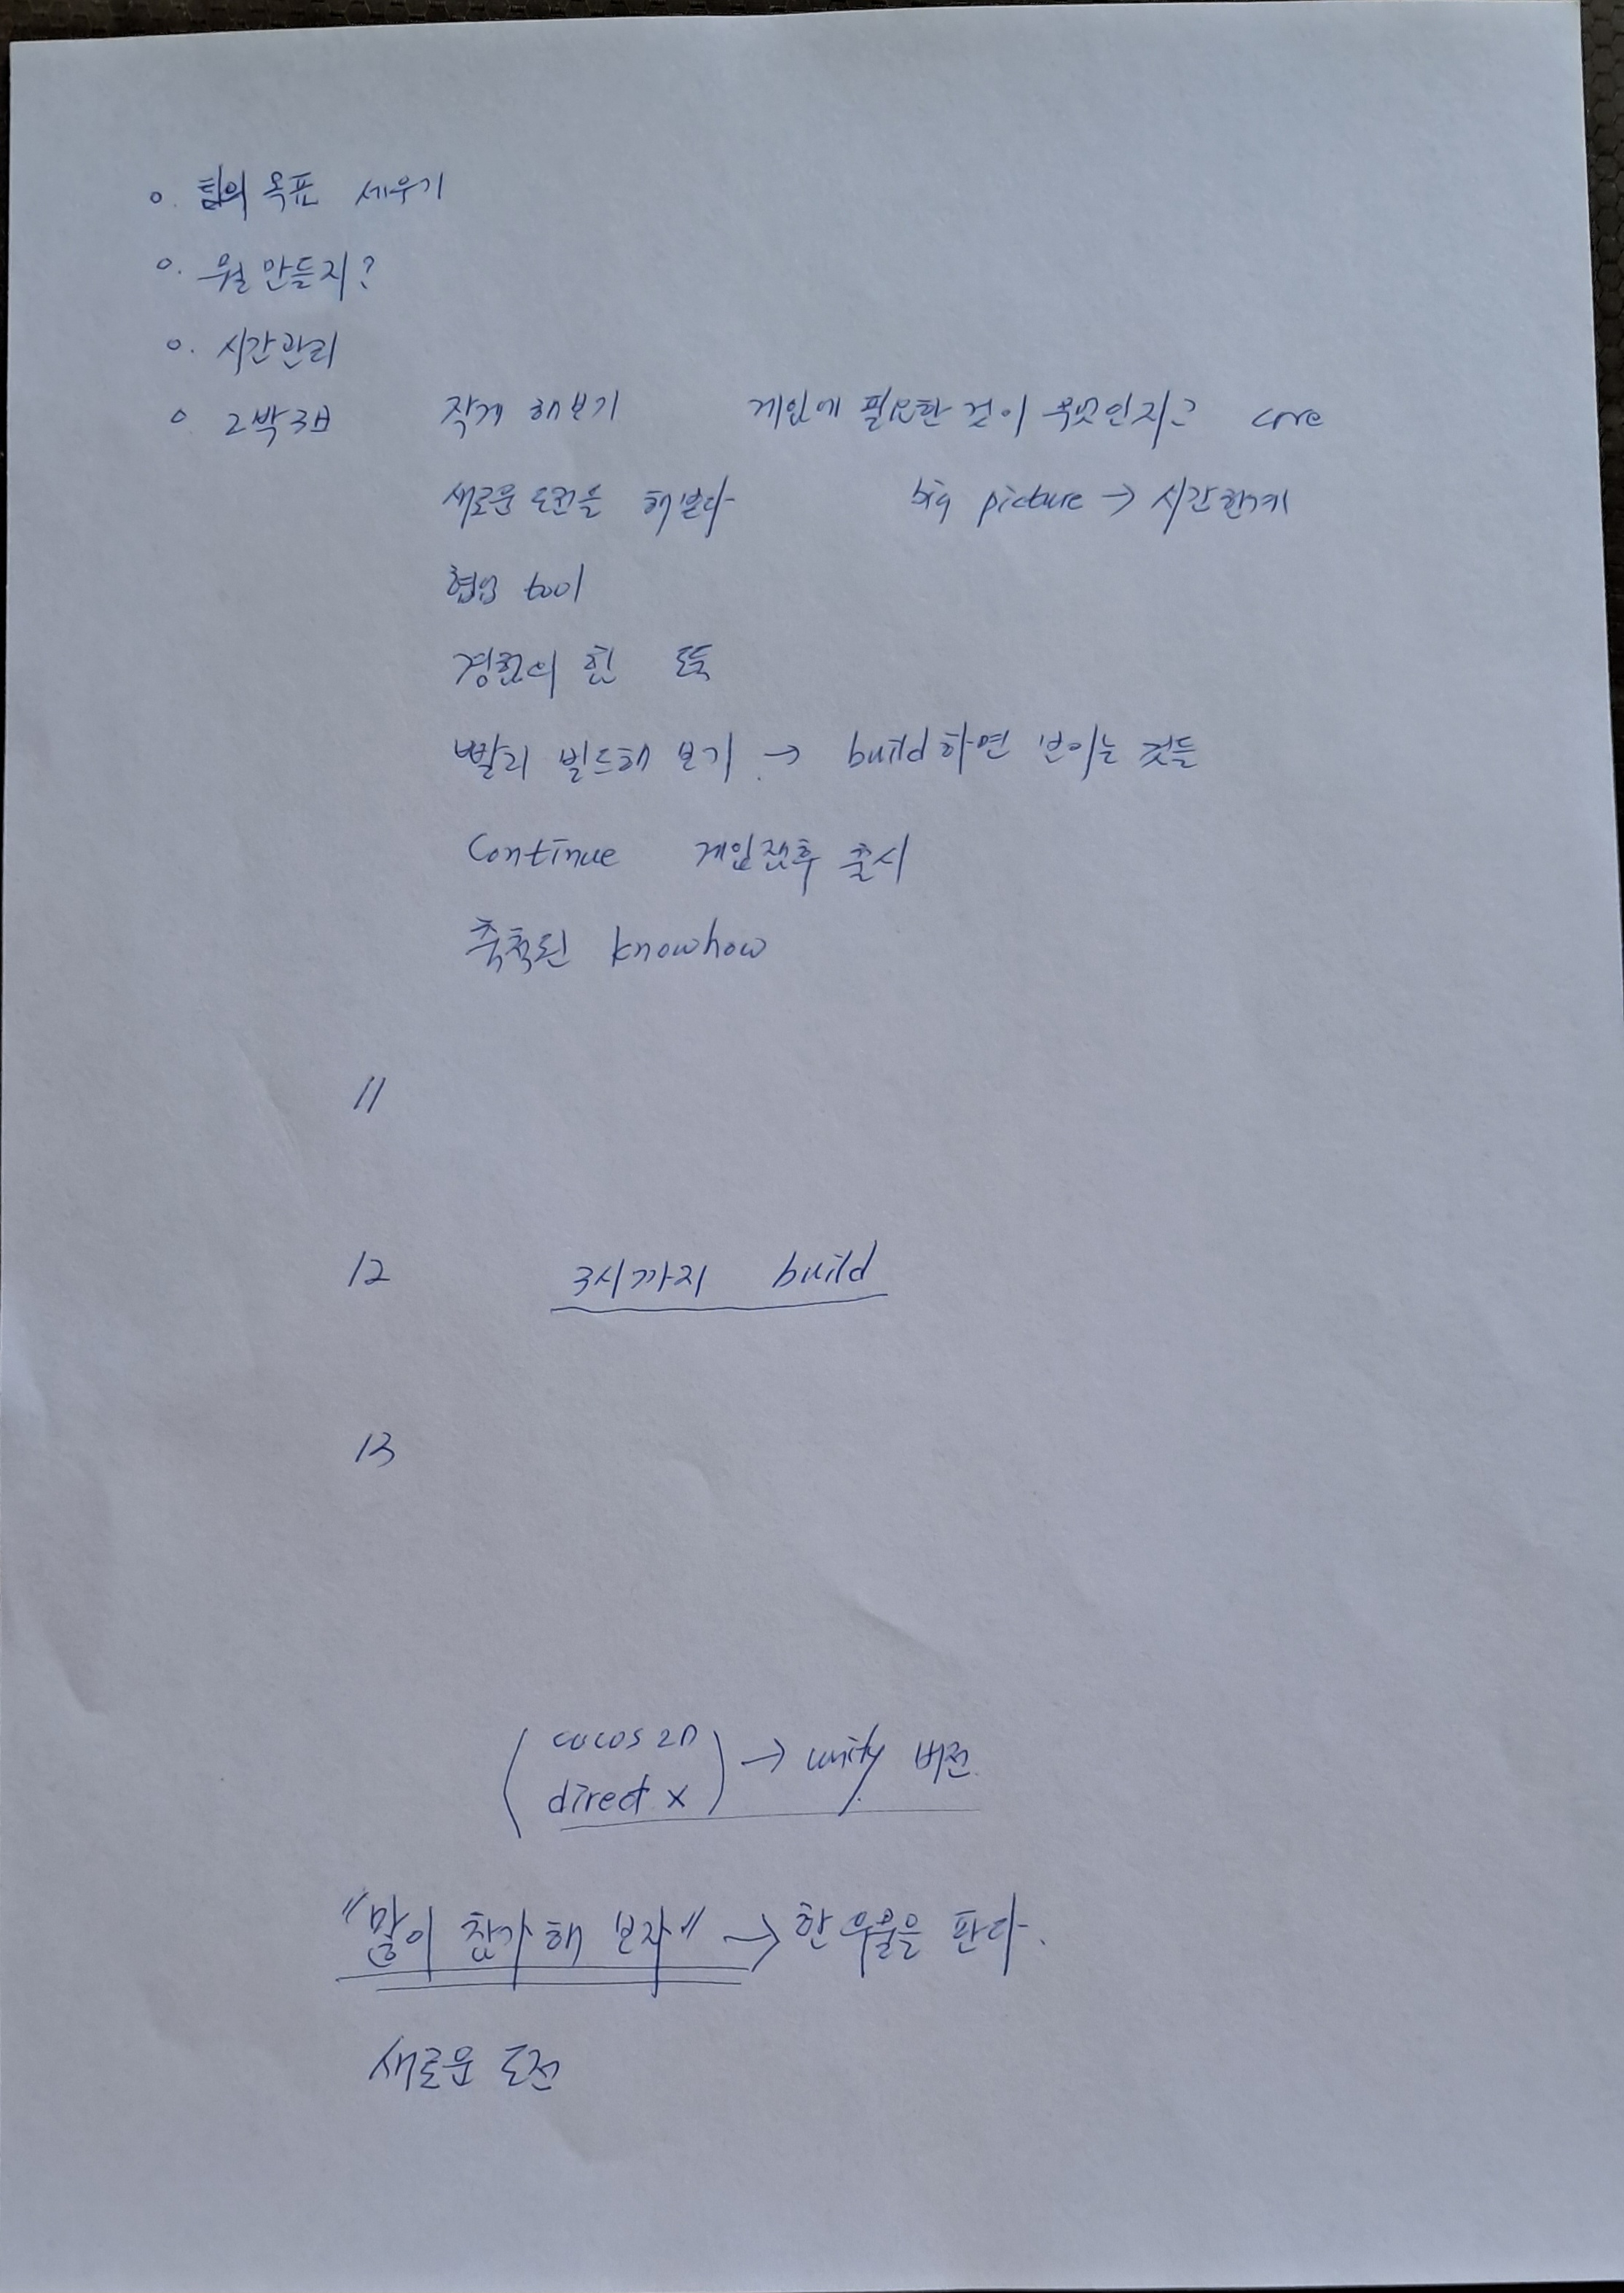 o. 팀의 목표 세우기
o. 뭘 만들지?
o. 시간관리
o 2박3日 작게 해보기 게임에 필요한 것이 무엇인지? core
새로운 도전을 해보다 big picture → 시간한계
협업 tool
경험의 힘
빨리 빌드해 보기 → build하면 보이는 것들
Continue 게임잼후 출시
축척된 knowhow
11
12 3시까지 build
13
cocos 2D
direct x → unity 버전.
"많이 참가해 보자" → 한 우물을 판다.
새로운 도전